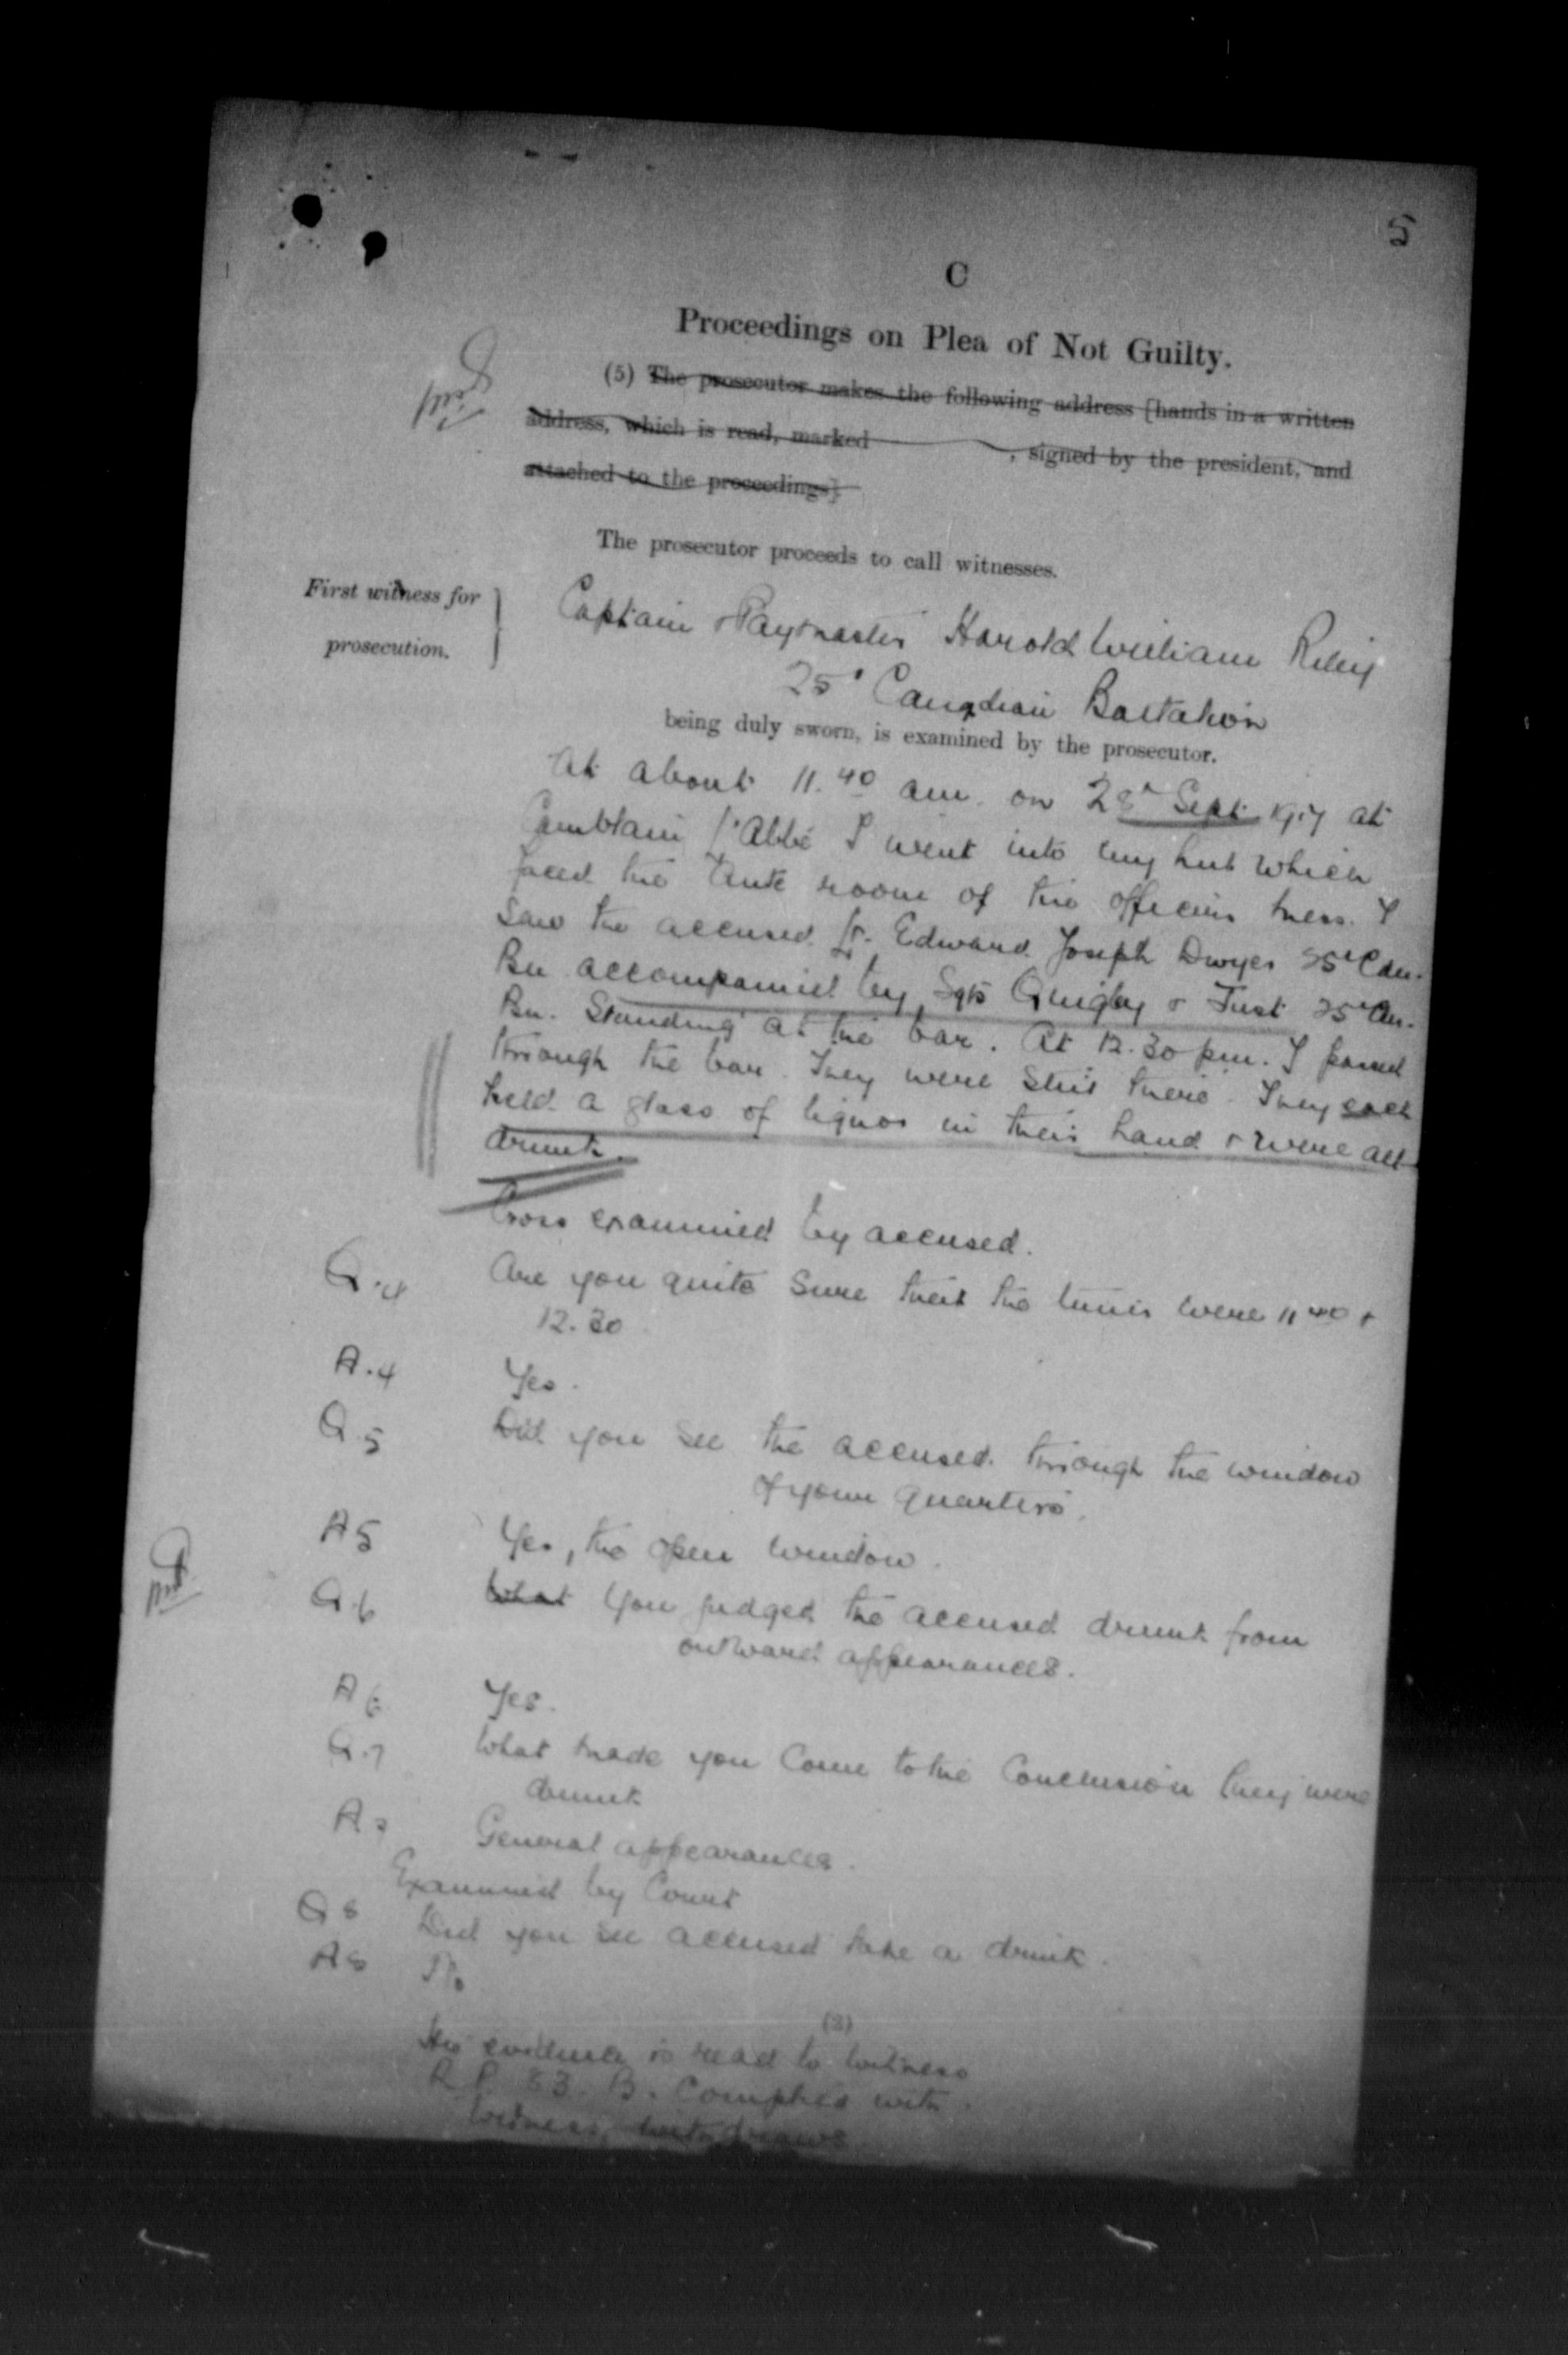 5
C
Proceedings on Plea of Not Guilty.
(5) The prosecutor makes the following address [hands in a written
address, which is read, marked , signed by the president, and
attached to the proceedings]
The prosecutor proceeds to call witnesses.
First witness for
prosecution.
Captain & Paymaster Harold William Riley
25' Canadian Battalion
being duly sworn, is examined by the prosecutor.
At about 11.40 am. on 28' Sept. 1917 at
Camblain l'Abbé I went into my hut which
faced the Ante room of the officers mess. I
saw the accused Lt. Edward Joseph Dwyer 25' Can.
Bn accompanied by Sgts Quigley & Just 25' Can.
Bn. Standing at the bar. At 12.30 pm. I passed
through the bar. They were still there. They each
held a glass of liquor in their hand & were all
drunk.
Cross examined by accused.
Q.4 Are you quite sure that the times were 11 40 &
12.30.
A.4 Yes.
Q.5 Did you see the accused through the window
of your quarters.
A5 Yes, the open window.
Q.6 What You judged the accused drunk from
outward appearances.
A6 Yes.
Q.7 What made you come to the conclusion they were
drunk
A7 General appearances.
Examined by Court
Q8 Did you see accused take a drink.
A8 No
(3)
His evidence is read to witness
R.P. 83. B. Complied with.
Witness withdraws